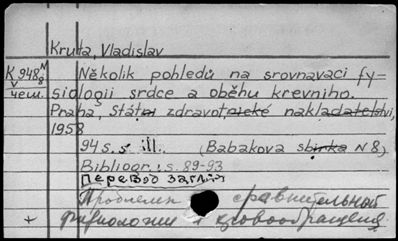 Kruta, Vladislav
K 948 M/8
v
чеш.
Několik pohledů na srovnavací fy=
siologii srdce a oběhu krevního.
Praha, Státní zdravotnické nakladatelství,
1958
94 s. s ill. (Babakova sbirka N 8)
Bibliogr.: s. 89-93
Перевод заглав
Проблемы сравнительной
+ физиологии кровообращения